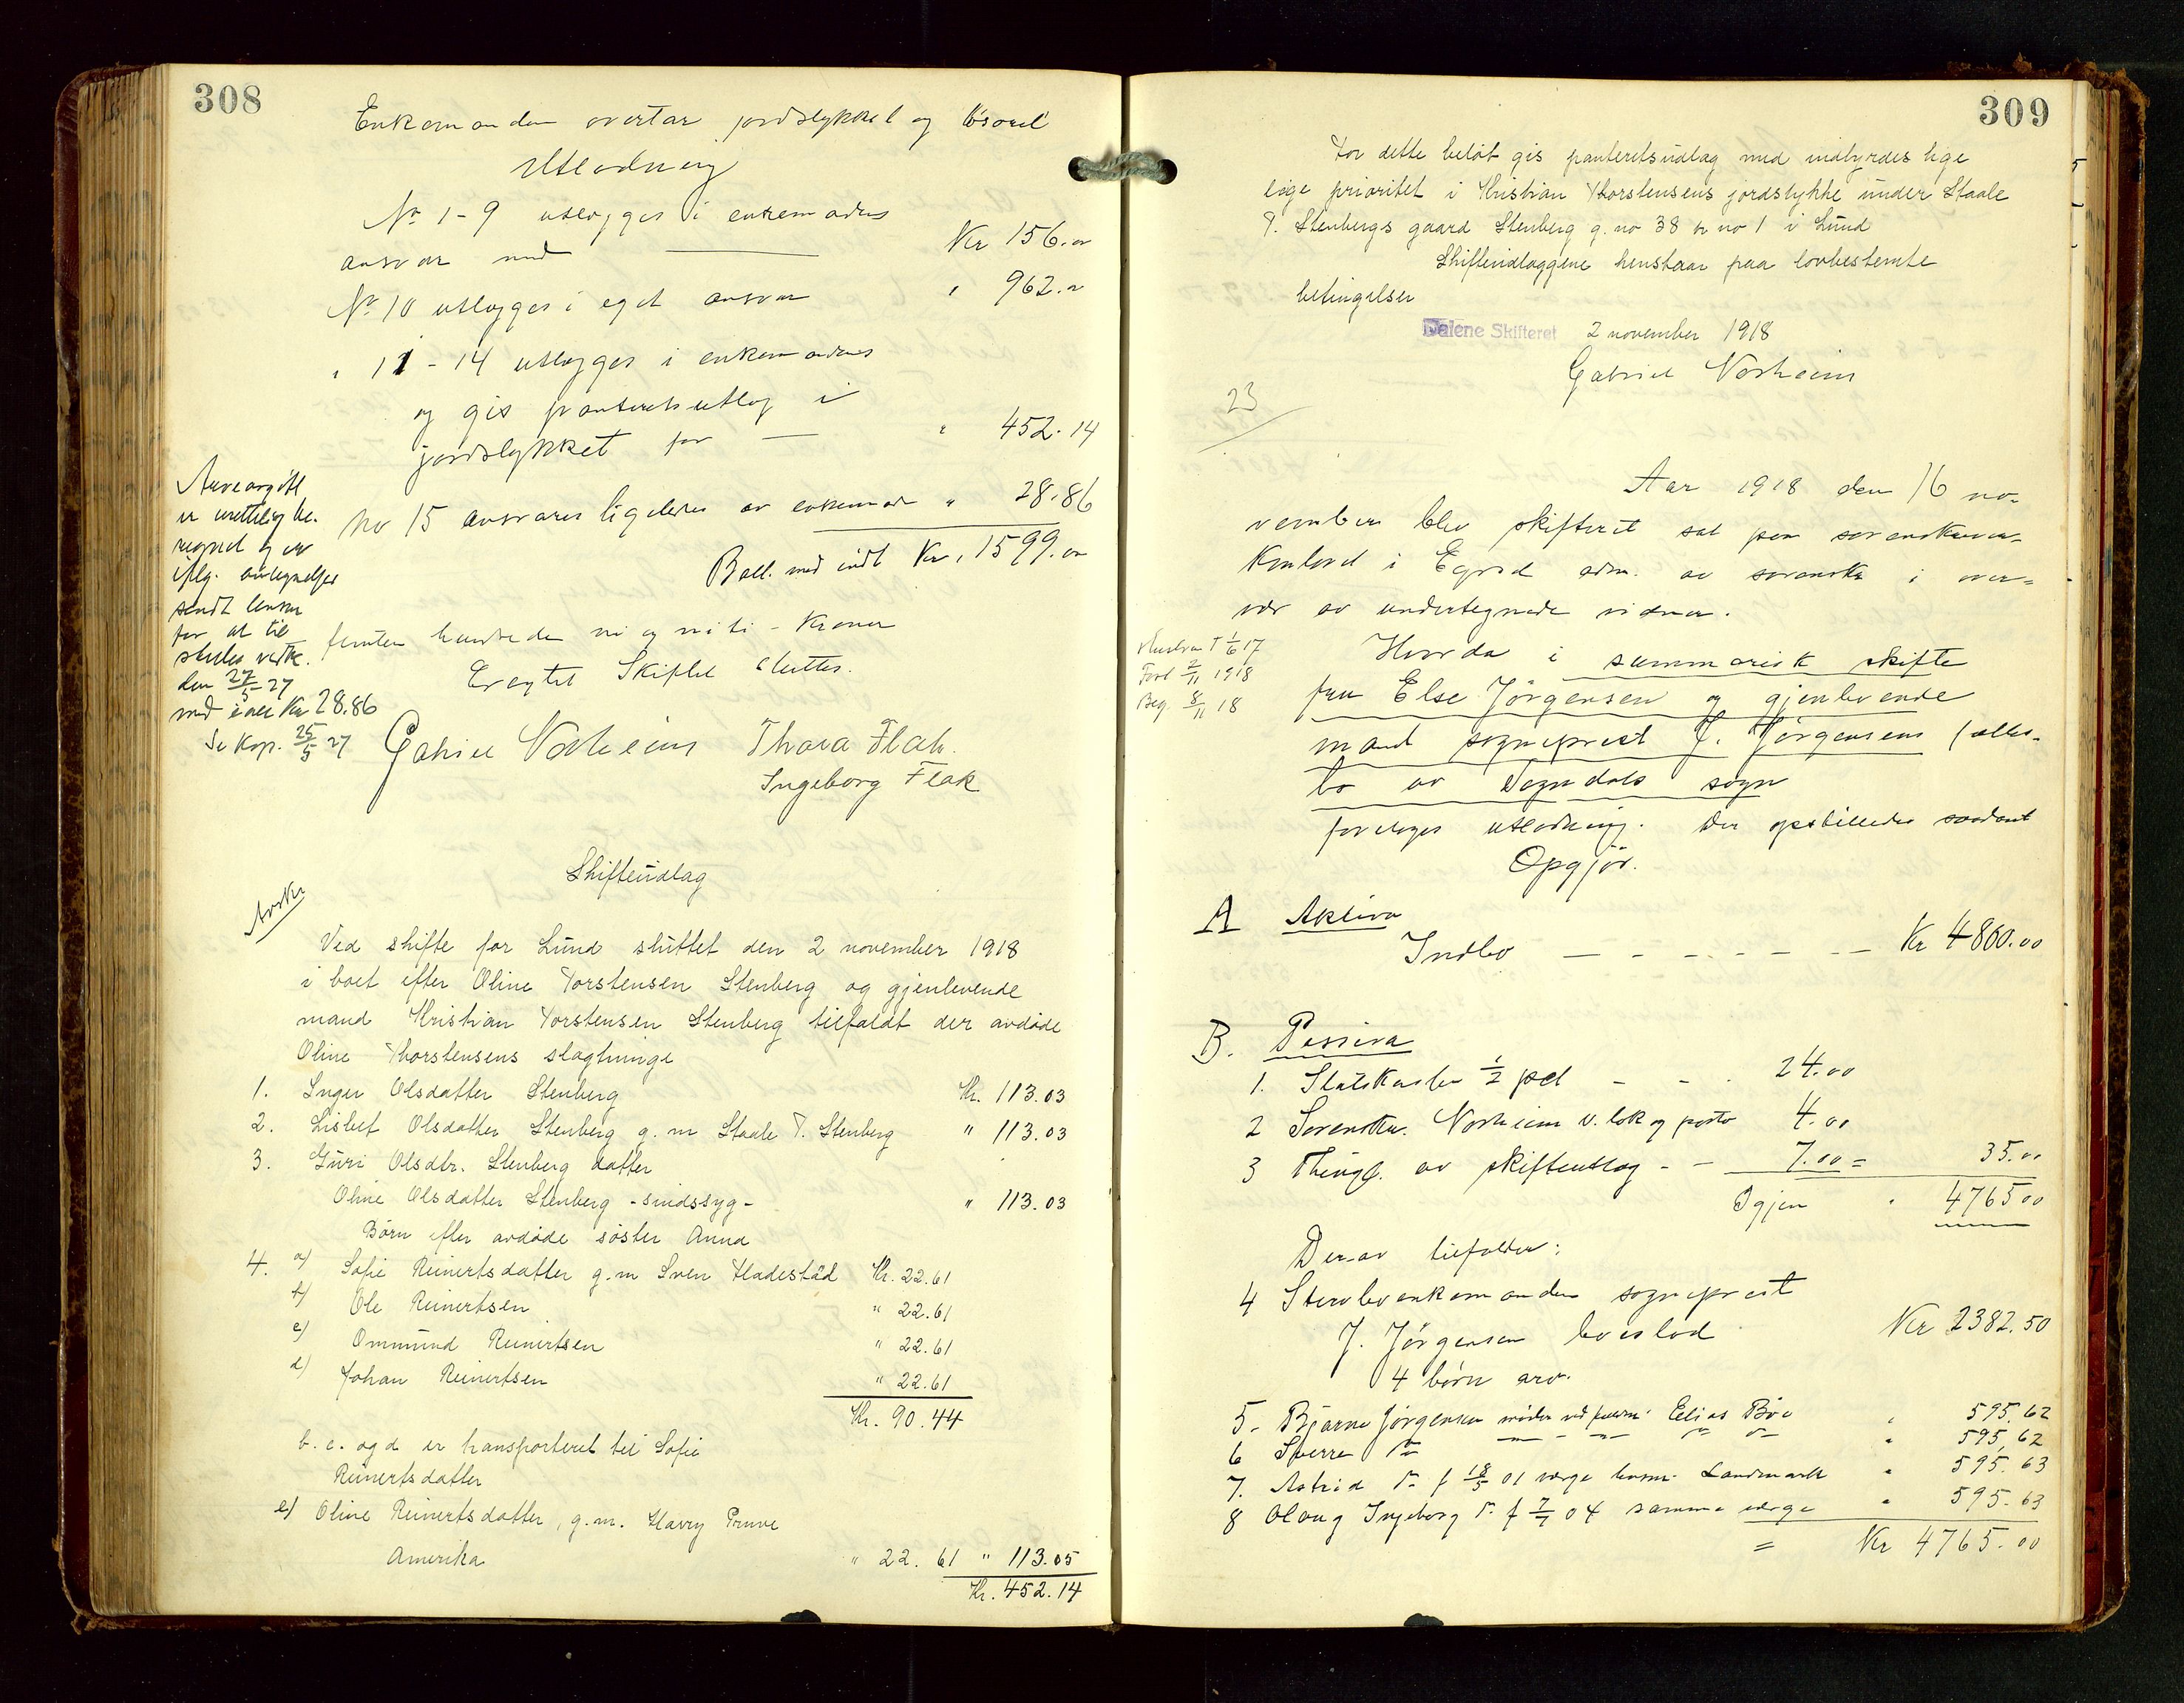 308
Enkemanden overtar jordstykket og løsøret
Utlodning
No 1-9 utlægges i enkemandens
ansvar med Kr 156.00
No 10 utlægges i eget ansvar " 962.00
" 11-14 utlægges i enkemandens
og gis panteretsutlæg i
jordstykket for — " 452.14
No 15 ansvares ligeledes av enkemand " 28.86
Ball. med indt Kr. 1599.00
femten hundrede ni og niti - Kroner
Skiftet sluttes.
Gabriel Norheim Thora Flak.
Ingeborg Flak
Arveavgift
er urettelig be-
regnet og er
iflg.
sendt
for at til
den 27/5-27
med Kr 28.86
Se Kop. 25/5 27
Skifteudlag
Ved skifte for Lund sluttet den 2 november 1918
i boet efter Oline Torstensen Stenberg og gjenlevende
mand Kristian Torstensen Stenberg tilfaldt der avdöde
Oline Thorstensens slagtninge
1. Inger Olsdatter Stenberg Kr. 113.03
2. Lisbet Olsdatter Stenberg g. m Staale T. Stenberg " 113.03
3. Guri Olsdtr. Stenberg datter
Oline Olsdatter Stenberg - sindssyg - " 113.03
Børn efter avdöde söster Anna
4. a) Sofie Reinertsdatter g.m Sven Hadestad Kr. 22.61
b) Ole Reinertsen " 22.61
c) Ommund Reinertsen " 22.61
d) Johan Reinertsen " 22.61
Kr. 90.44
b. c. og d er transporteret til Sofie
Reinertsdatter
e) Oline Reinertsdatter, g.m. Harry Pruve
Amerika " 22.61 " 113.05
Kr. 452.14
309
For dette belöb gis panteretsudlæg med indbyrdes lige
lige prioritet i Kristian Thorstensens jordstykke under Staale
T. Stenbergs gaard Stenberg g. no 38 br no 1 i Lund
Skifteudlæggene henstaar paa lovbestemte
betingelser
Dalene Skifteret 2 november 1918
Gabriel Norheim
23
Aar 1918 den 16 no-
vember blev skifteret sat paa sorenskriver-
Kontoret i Egersd adm. av sorenskr i over-
vær av undertegnede vidner.
Hustru † 1/6 17
Forl 2/11 1918
Beg. 8/11 18
Hvorda i summarisk skifte
fru Else Jørgensen og gjenlevende
mand sogneprest J. Jørgensens fælles-
bo av Sogndals sogn
foretoges utlodning. Der opstilledes saadant
Opgjör.
A Aktiva
Indbo — — — Kr 4800.00
B. Passiva
1. Statskassen 1/2 pct - - 24.00
2 Sorenskr. Norheim v. lok og porto 4.00
3 Thingl. av skifteutlæg - - 7.00 = 35.00
Igjen " 4765.00
Derav tilfalder:
4 Stervboenkemanden sogneprest
J. Jørgensen boeslod Kr 2382.50
4 börn arv.
5. Bjarne Jørgensen Elias Bøe " 595.62
6 Sverre " 595,62
7. Astrid f 18/5 01 værge Landmark " 595.63
8 Olaug Ingeborg f 7/7 04 samme værge " 595.63
= Kr 4765.00